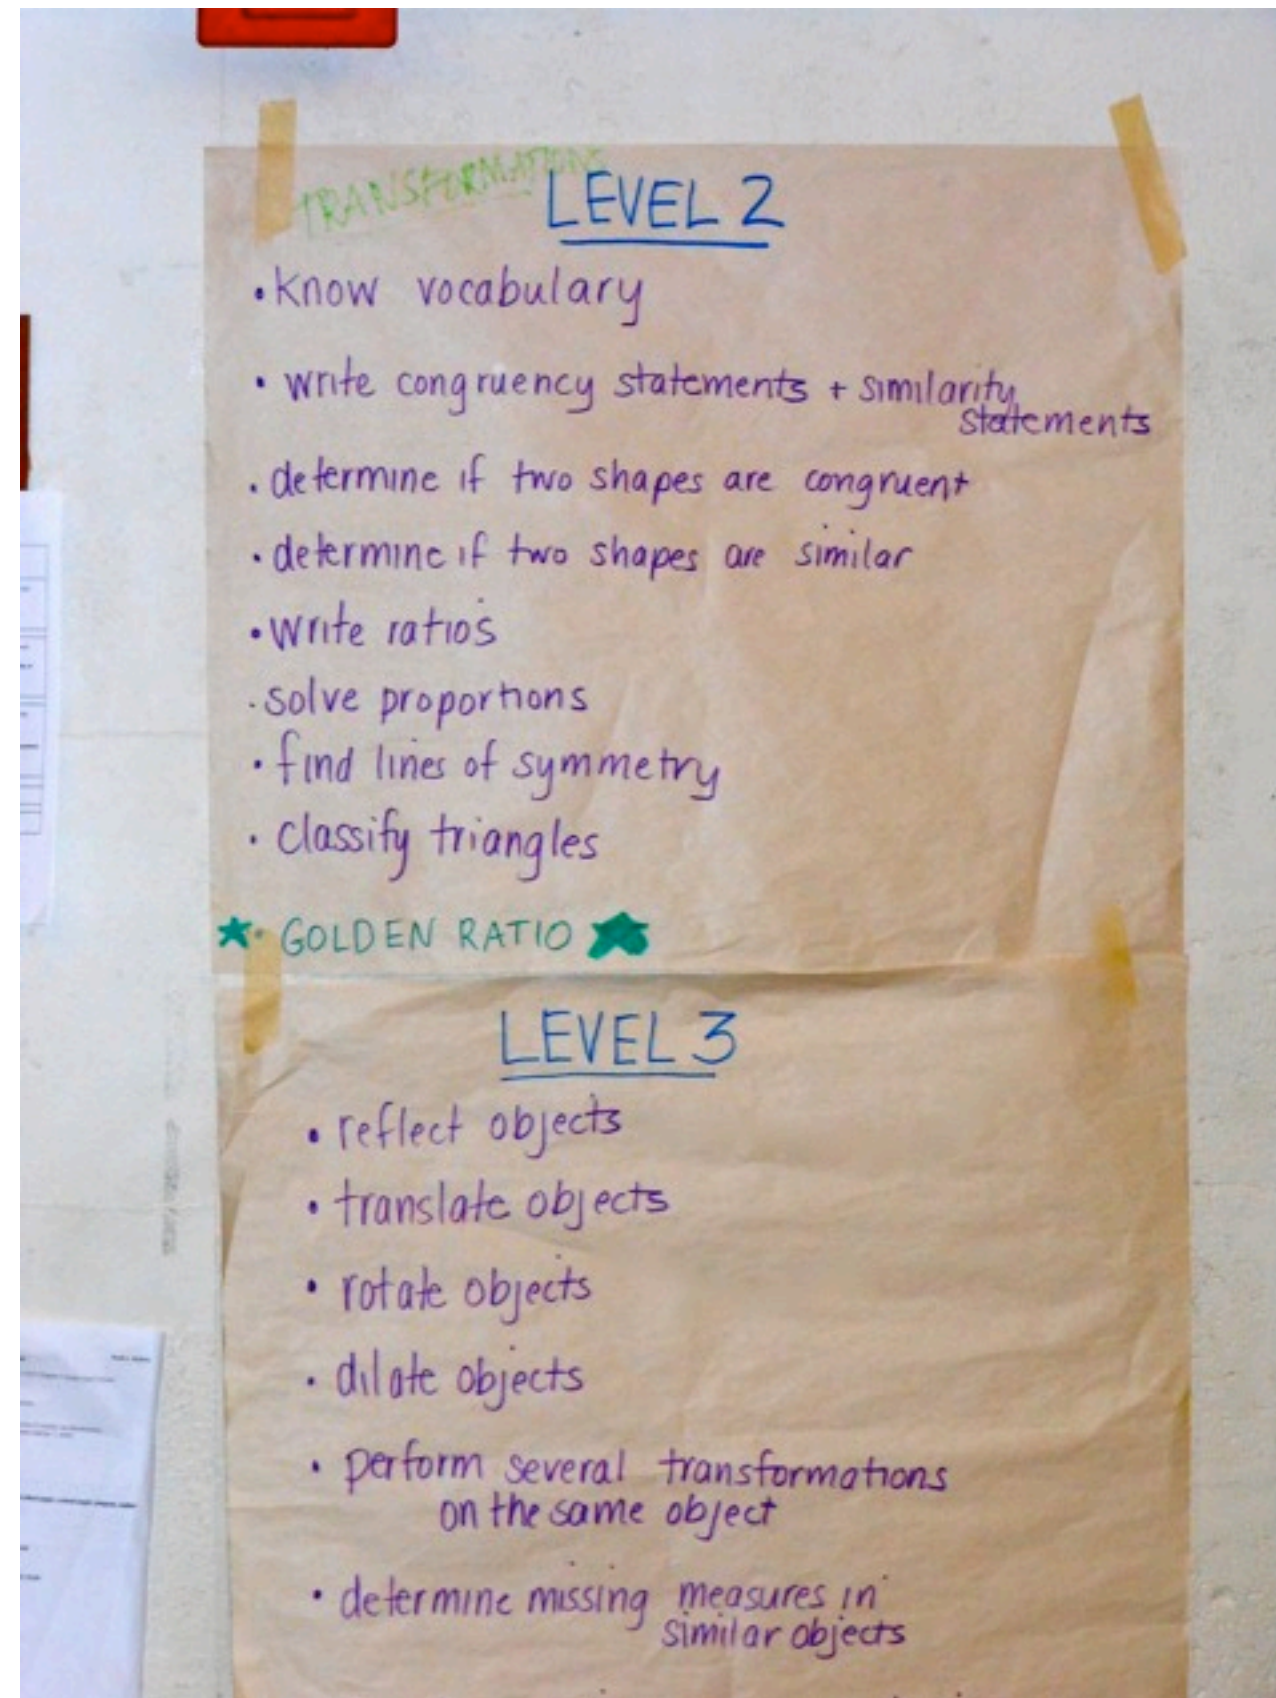 TRANSFORMATIONS
LEVEL 2
• know vocabulary
• write congruency statements + similarity
statements
• determine if two shapes are congruent
• determine if two shapes are similar
• write ratios
• solve proportions
• find lines of symmetry
• classify triangles
★ • GOLDEN RATIO ★
LEVEL 3
• reflect objects
• translate objects
• rotate objects
• dilate objects
• perform several transformations
on the same object
• determine missing measures in
similar objects